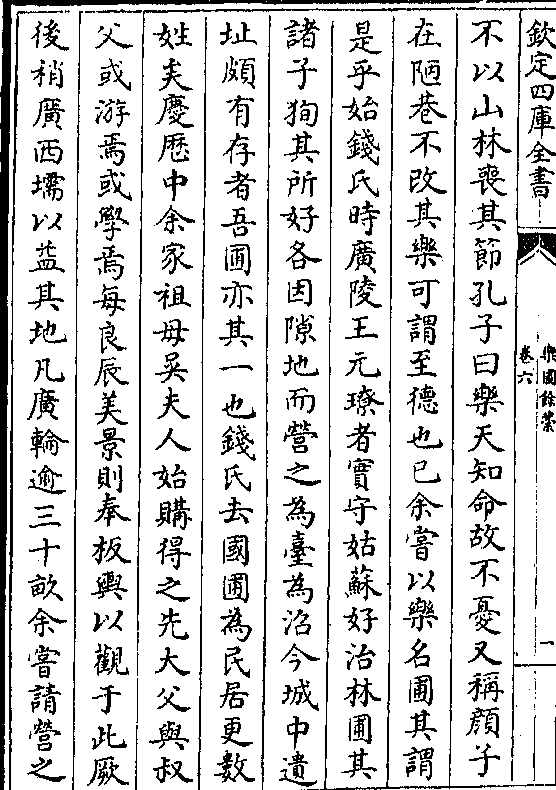 欽定四庫全書
樂圃餘藁
卷六
一
不以山林喪其節孔子曰樂天知命故不憂又稱顏子
在陋巷不改其樂可謂至德也已余嘗以樂名圃其謂
是乎始錢氏時廣陵王元璙者實守姑蘇好治林圃其
諸子狥其所好各因隙地而營之為臺為沼今城中遺
址頗有存者吾圃亦其一也錢氏去國圃為民居更數
姓矣慶厯中余家祖母吳夫人始購得之先大父與叔
父或游焉或學焉每良辰美景則奉板輿以觀于此厥
後稍廣西壖以益其地凡廣輪逾三十畝余嘗請營之